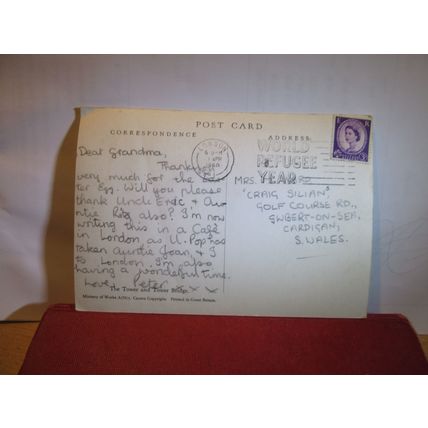 POST CARD
CORRESPONDENCE
ADDRESS
Dear Grandma,
Thankyou
very much for the Eas-
ter Egg. Will you please
thank Uncle Eric & Au-
ntie Rita also? I'm now
writing this in a Café
in London as U. Pop has
taken Auntie Joan & I
to London. I'm also
having a wonderful time.
Love Peter x x x x
The Tower and Tower Bridge.
Ministry of Works. Crown Copyright. Printed in Great Britain.
LONDON
APR
1960
WORLD
REFUGEE
YEAR
MRS.
'CRAIG SILIAN',
GOLF COURSE RD.,
GWBERT-ON-SEA.
CARDIGAN,
S. WALES.